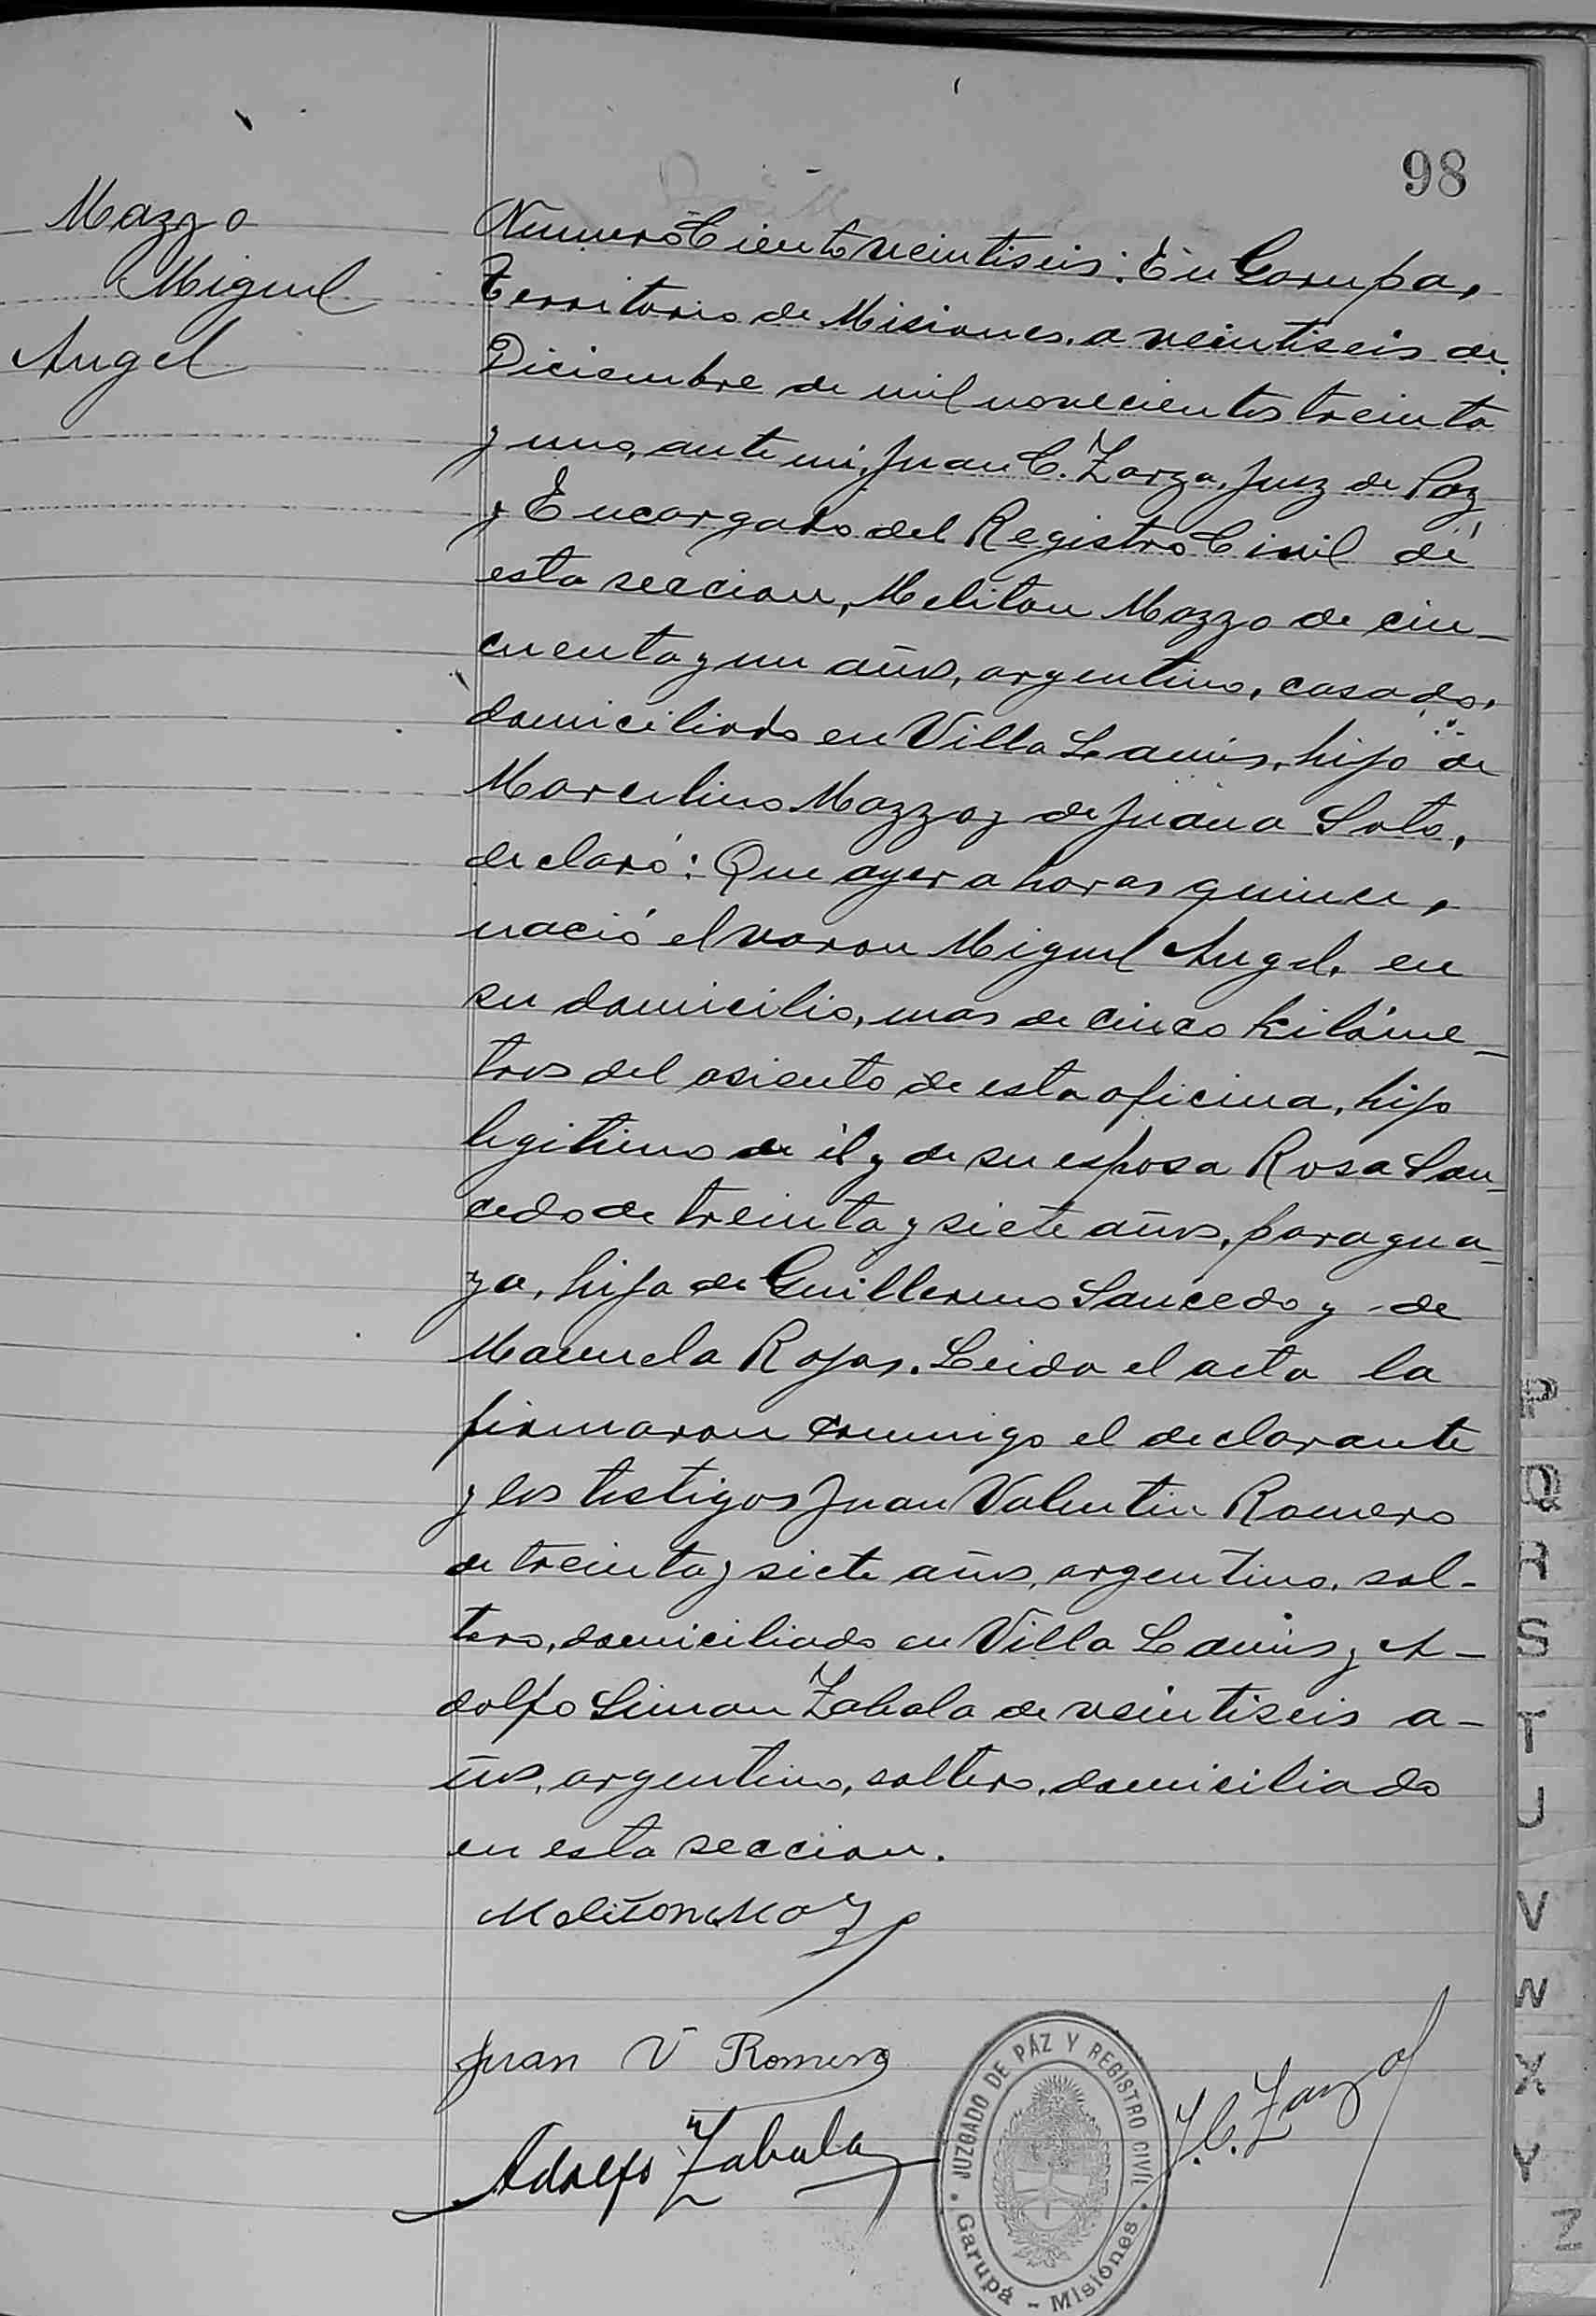 98
Mazzo
Miguel
Angel
Numero Ciento veintiseis: En Garupa,
Territorio de Misiones, a veintiseis de
Diciembre de mil novecientos treinta
y uno, ante mi, Juan C. Zarza, Juez de Paz
y Encargado del Registro Civil de
esta seccion, Meliton Mazzo de cin-
cuenta y un años, argentino, casado,
domiciliado en Villa Lanus, hijo de
Marcelino Mazzo y de Juana Soto,
declaró: Que ayer a horas quince,
nació el varon Miguel Angel, en
su domicilio, mas de cinco kilóme-
tros del asiento de esta oficina, hijo
legitimo de él y de su esposa Rosa Sau-
cedo de treinta y siete años, paragua-
ya, hija de Guillermo Saucedo y de
Manuela Rojas. Leida el acta la
firmaron conmigo el declarante
y los testigos Juan Valentin Romero
de treinta y siete años, argentino, sol-
tero, domiciliado en Villa Lanus y A-
dolfo Simon Zabala de veintiseis a-
ños, argentino, soltero, domiciliado
en esta seccion.
Meliton Mazo
Juan V Romero
Adolfo Zabala
J. C. Zarza
JUZGADO DE PÁZ Y REGISTRO CIVIL
Garupá - Misiones
P
Q
R
S
T
U
V
W
X
Y
Z